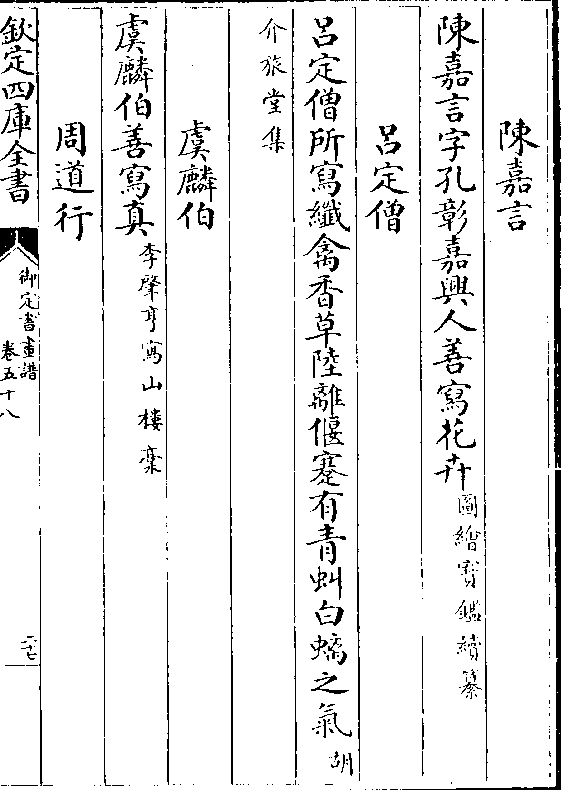 陳嘉言
陳嘉言字孔彰嘉興人善寫花卉圖繪寳鑑續纂
吕定僧
吕定僧所寫纖禽香草陸離偃蹇有青虯白螭之氣胡
介旅堂集
虞麟伯
虞麟伯善寫真李肇亨寫山樓稾
周道行
欽定四庫全書
御定書畫譜
卷五十八
二七